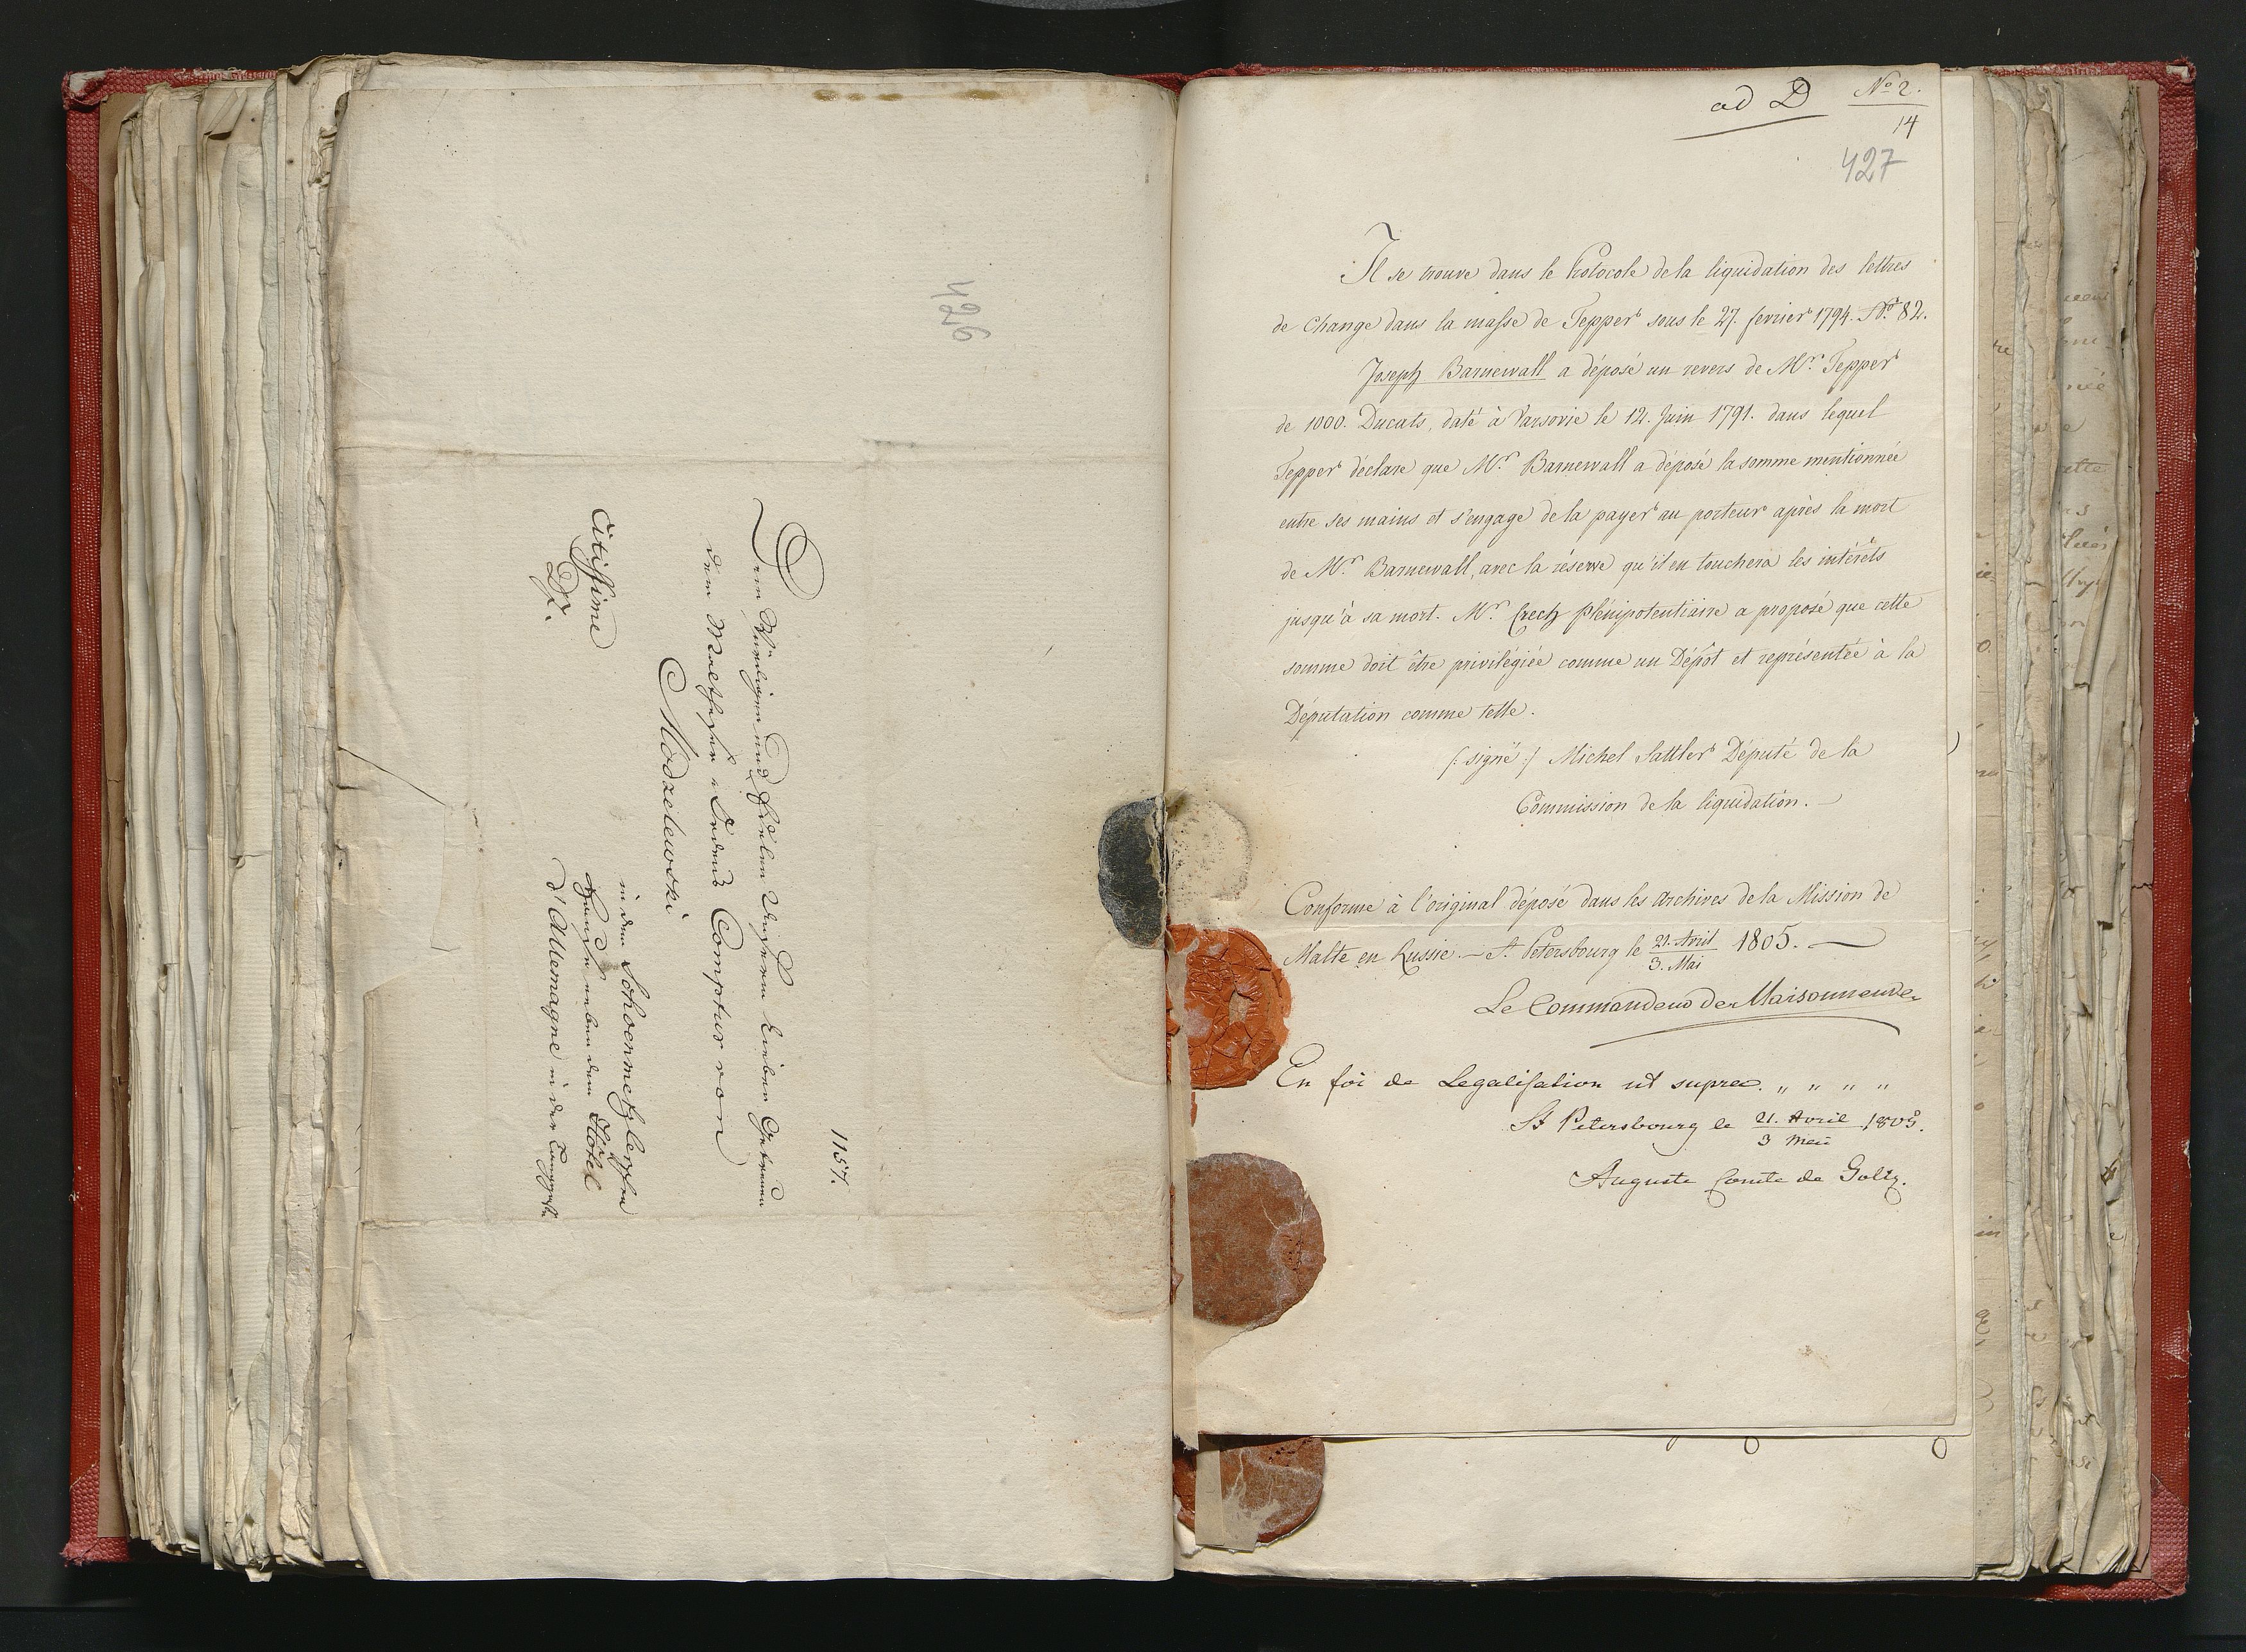 426
1157.
Dem Würdigen und Edelen Unserm Lieben Getreuen
dem Maltheser Ordens Comptur von
Modzelewski
in dem Schoenmetzlerschen
Hause neben dem Hôtel
d'Allemagne in der
Citissime
ad D No 2.
14
427
Il se trouve dans le Protocole de la liquidation des lettres
de Change dans la masse de Tepper sous le 27. fevrier 1794. No. 82.
Joseph Barnewall a déposé un revers de Mr. Tepper
de 1000. Ducats, daté à Varsovie le 12. Juin 1791. dans lequel
Tepper déclare que Mr. Barnewall a déposé la somme mentionnée
entre ses mains et s'engage de la payer au porteur après la mort
de Mr. Barnewall, avec la réserve qu'il en touchera les intérêts
jusqu'à sa mort. Mr. Crech Plénipotentiaire a proposé que cette
somme doit être privilégiée comme un Dépôt et représentée à la
Députation comme telle.
/: signé :/ Michel Sattler Député de la
Commission de la liquidation. —
Conforme à l'original déposé dans les Archives de la Mission de
Malte en Russie. — St. Petersbourg le 21. Avril / 3. Mai 1805. —
Le Commandeur de Maisonneuve
En foi de Legalisation ut supra. „ „ „ „
St Petersbourg le 21. Avril / 3 Mai 1805.
Auguste Comte de Goltz.